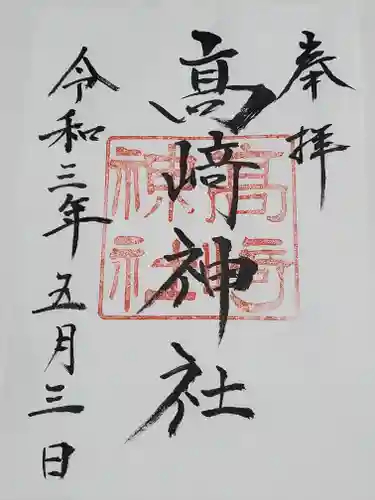 奉拝
高﨑神社
高崎
神社
令和三年五月三日